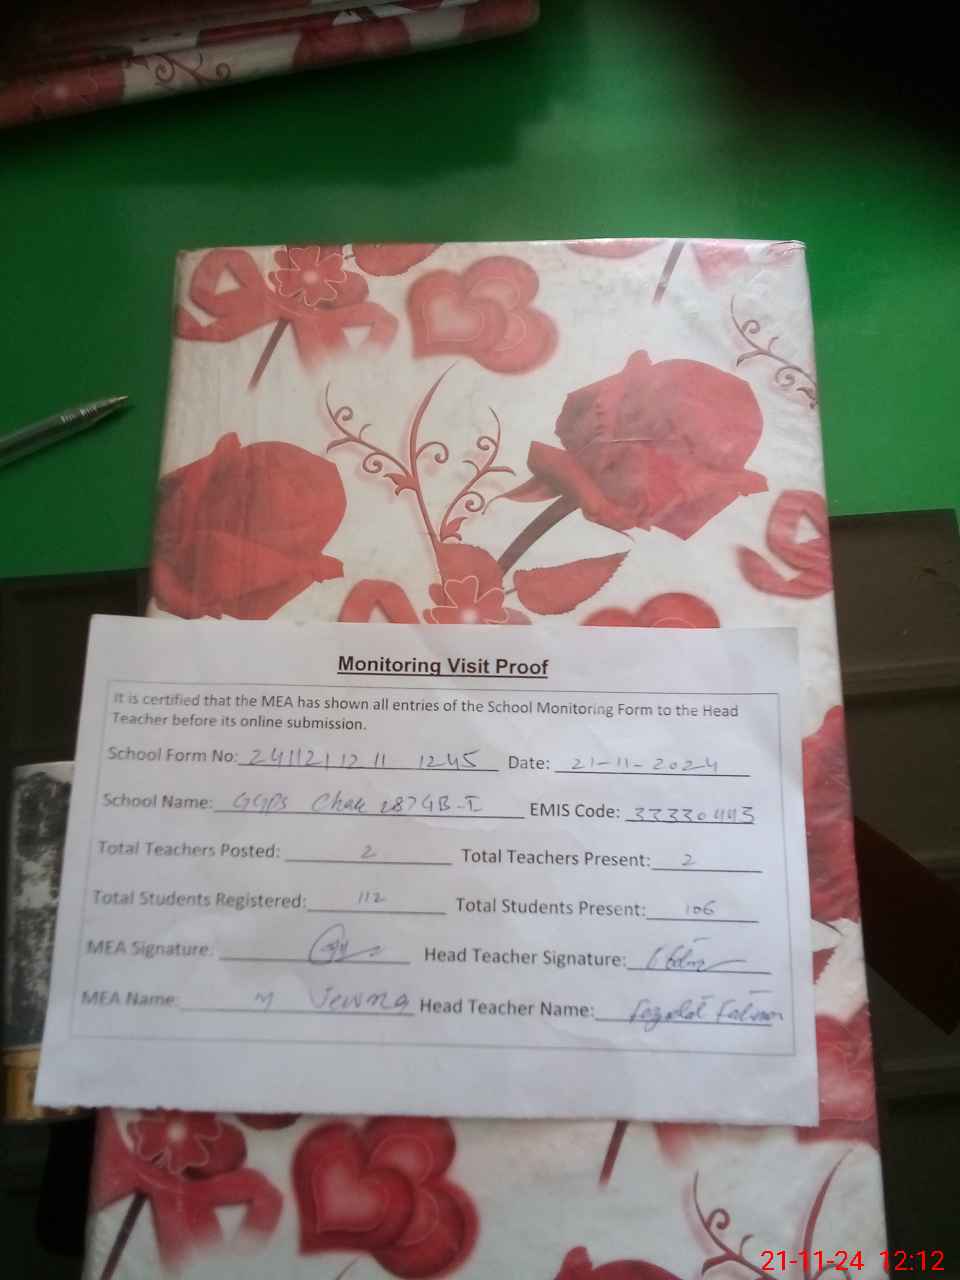 Monitoring Visit Proof
It is certified that the MEA has shown all entries of the School Monitoring Form to the Head
Teacher before its online submission.
School Form No: 24112112 11 1245 Date: 21-11-2024
School Name: GGPS Chak 287GB-I EMIS Code: 33330443
Total Teachers Posted: 2 Total Teachers Present: 2
Total Students Registered: 112 Total Students Present: 106
MEA Signature: Head Teacher Signature:
MEA Name: M Head Teacher Name:
21-11-24 12:12